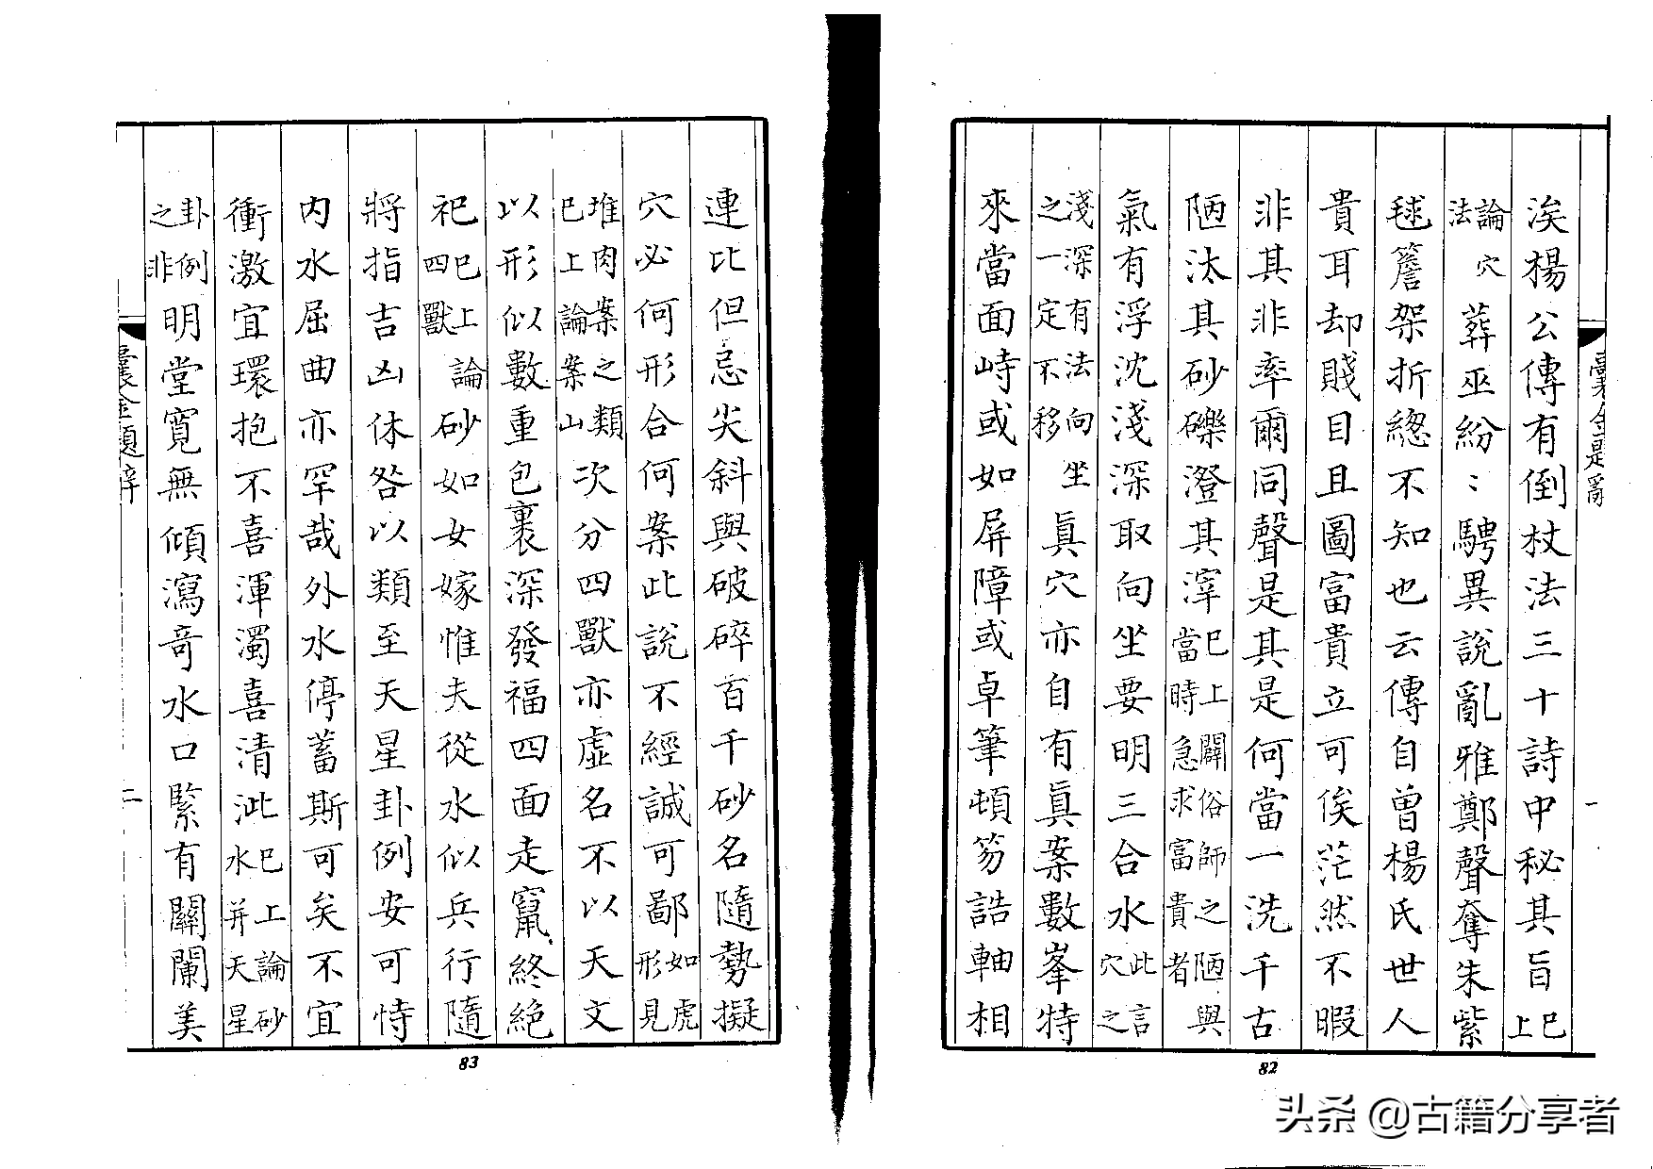 囊金題辭 一
涘楊公傳有倒杖法三十詩中秘其旨巳上
論穴法葬巫紛〻騁異說亂雅鄭聲奪朱紫
毬簷架折緫不知也云傳自曾楊氏世人
貴耳却賤目且圖富貴立可俟茫然不暇
非其非率爾同聲是其是何當一洗千古
陋汰其砂礫澄其滓巳上闢俗師之陋與當時急求富貴者
氣有浮沈淺深取向坐要明三合水此言穴之
淺深有法向坐之一定不移真穴亦自有真案數峯特
來當面峙或如屏障或卓筆頓笏誥軸相
82
連比但忌尖斜與破碎百千砂名隨勢擬
穴必何形合何案此說不經誠可鄙如虎形見
堆肉案之類巳上論案山次分四獸亦虛名不以天文
以形似數重包裹深發福四面走竄終絕
祀巳上論四獸砂如女嫁惟夫從水似兵行隨
將指吉凶休咎以類至天星卦例安可恃
內水屈曲亦罕哉外水停蓄斯可矣不宜
衝激宜環抱不喜渾濁喜清泚巳上論砂水并天星
卦例之非明堂寬無傾瀉奇水口緊有關闌美
囊金題辭 二
83
头条 @古籍分享者